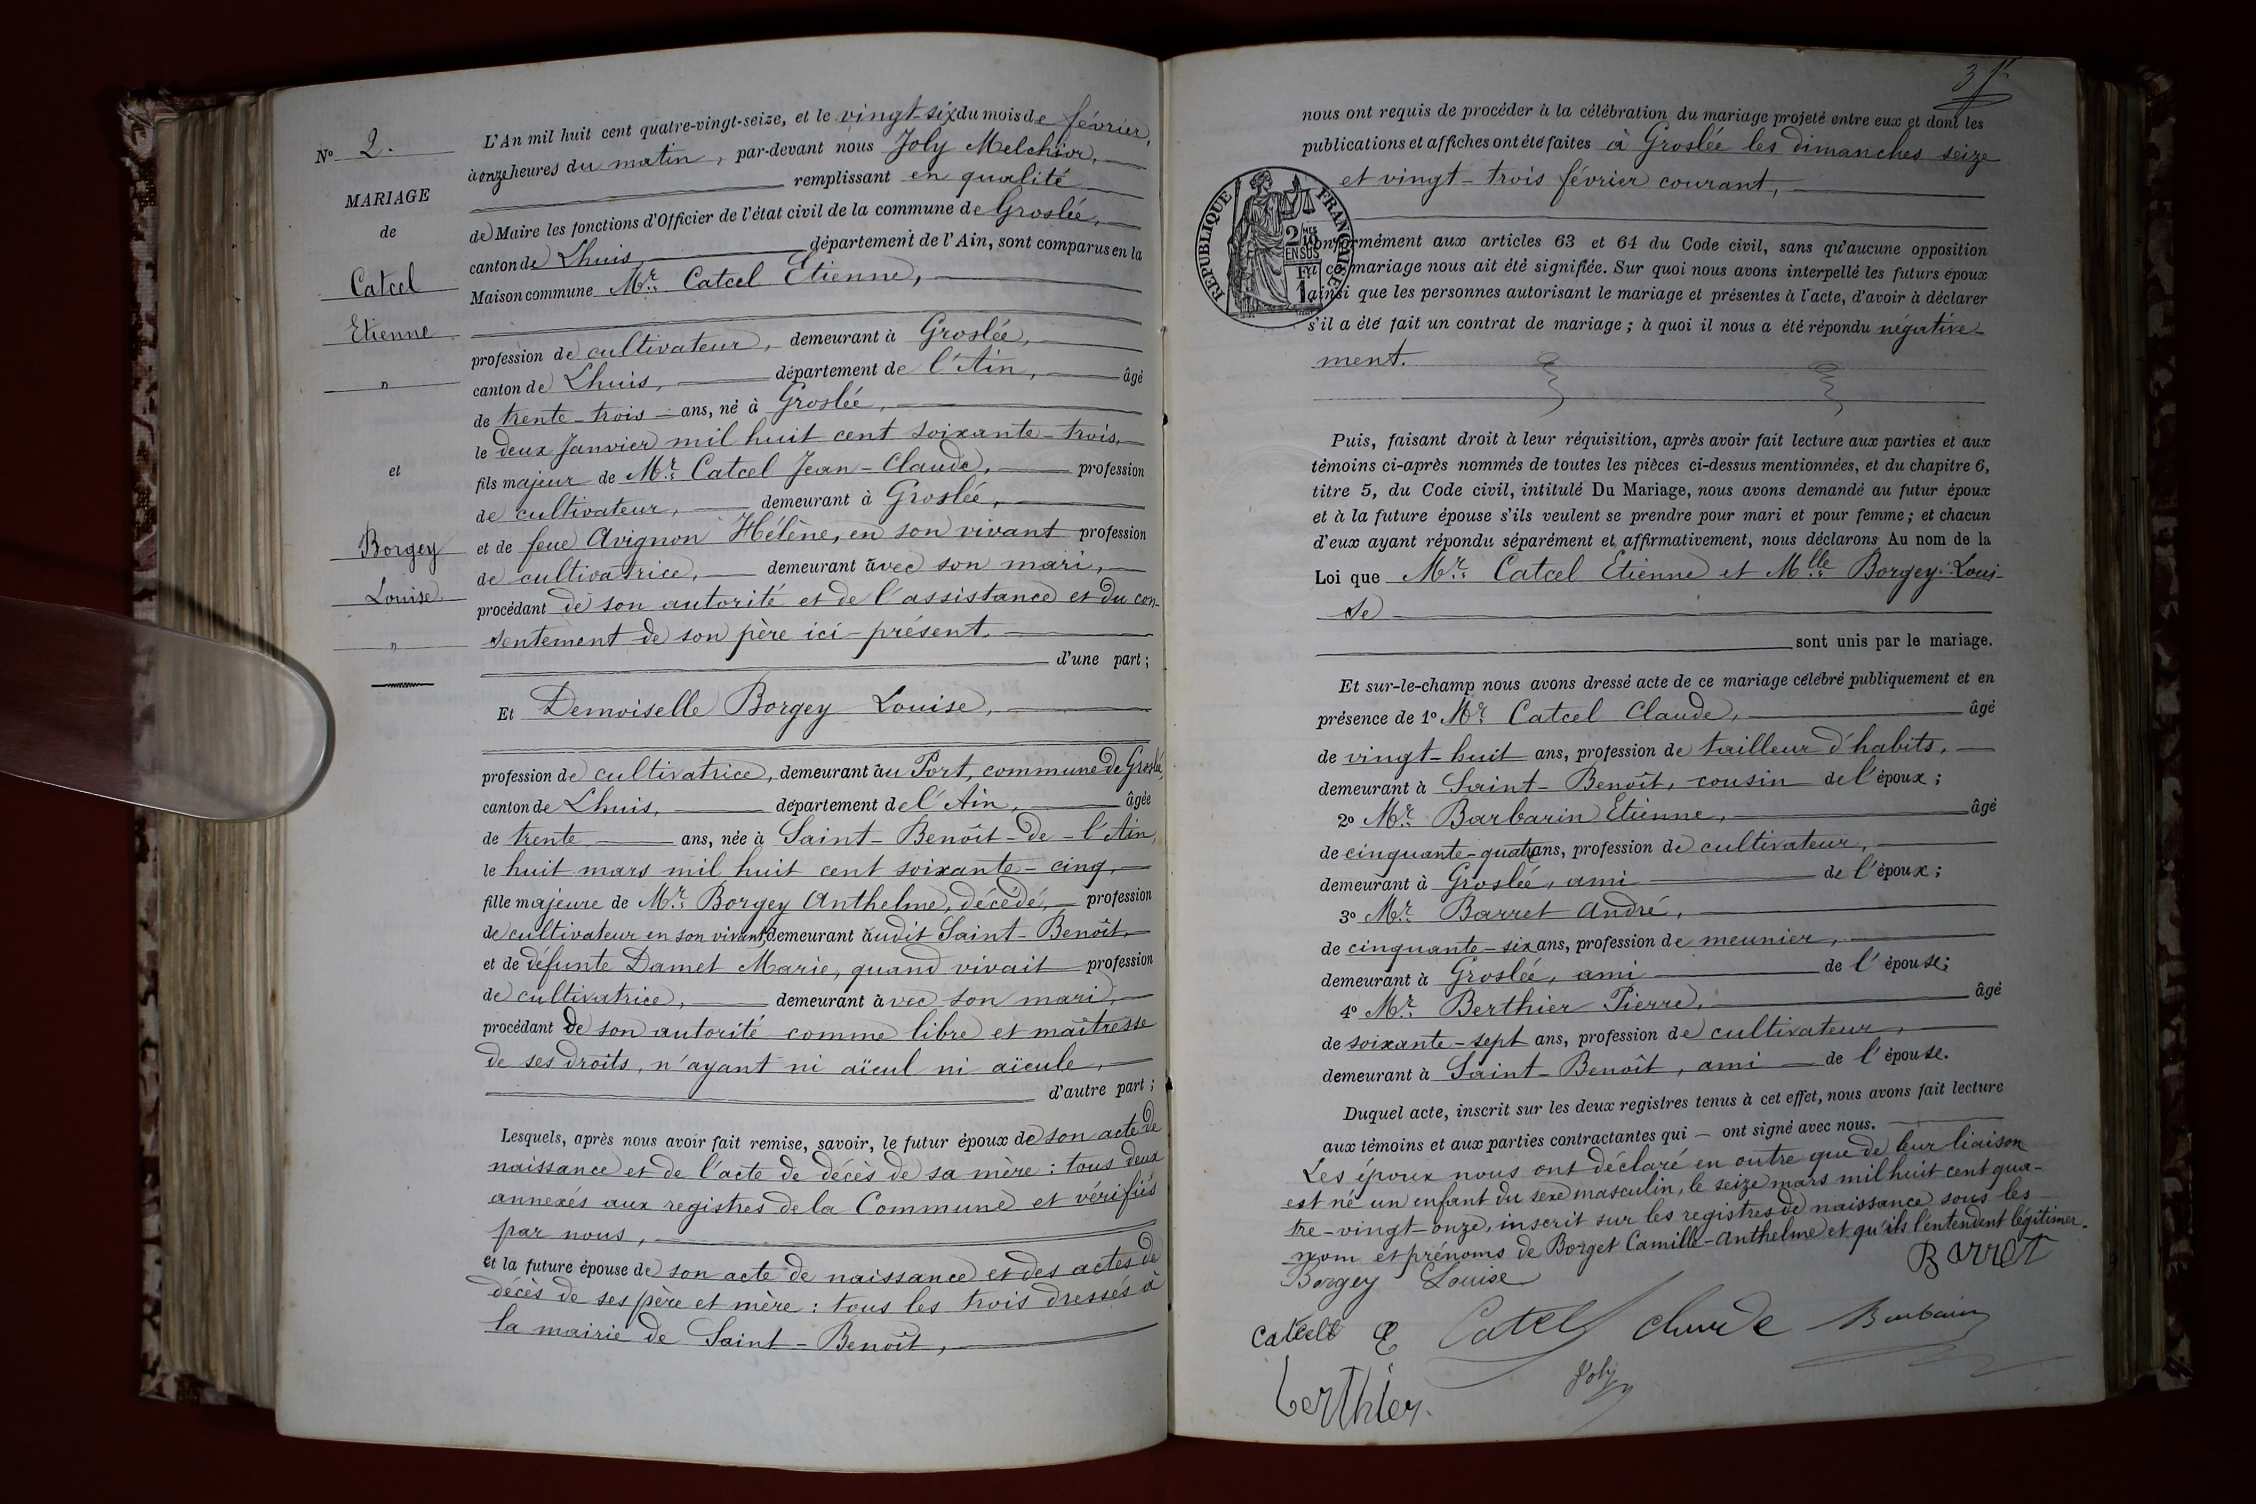 N° 2.
MARIAGE
de
Catcel
Etienne
"
et
Borgey
Louise
"
L'An mil huit cent quatre-vingt-seize, et le vingt-six du mois de février,
à onze heures du matin, par-devant nous Joly Melchior,
remplissant en qualité
de Maire les fonctions d'Officier de l'état civil de la commune de Groslée,
canton de Lhuis, département de l'Ain, sont comparus en la
Maison commune Mr. Catcel Etienne,
profession de cultivateur, demeurant à Groslée,
canton de Lhuis, département de l'Ain, âgé
de trente-trois ans, né à Groslée,
le deux Janvier mil huit cent soixante-trois,
fils majeur de Mr. Catcel Jean-Claude, profession
de cultivateur, demeurant à Groslée,
et de feue Avignon Hélène, en son vivant profession
de cultivatrice, demeurant avec son mari,
procédant de son autorité et de l'assistance et du con-
sentement de son père ici-présent.
d'une part;
Et Demoiselle Borgey Louise,
profession de cultivatrice, demeurant au Port, commune de Groslée,
canton de Lhuis, département de l'Ain, âgée
de trente ans, née à Saint-Benoît-de-l'Ain,
le huit mars mil huit cent soixante-cinq,
fille majeure de Mr. Borgey Anthelme, décédé, profession
de cultivateur en son vivant, demeurant audit Saint-Benoît,
et de défunte Damet Marie, quand vivait profession
de cultivatrice, demeurant avec son mari,
procédant de son autorité comme libre et maîtresse
de ses droits, n'ayant ni aïeul ni aïeule,
d'autre part;
Lesquels, après nous avoir fait remise, savoir, le futur époux de son acte de
naissance et de l'acte de décès de sa mère: tous deux
annexés aux registres de la Commune et vérifiés
par nous,
et la future épouse de son acte de naissance et des actes de
décès de ses père et mère: tous les trois dressés à
la mairie de Saint-Benoît,
3
nous ont requis de procéder à la célébration du mariage projeté entre eux et dont les
publications et affiches ont été faites à Groslée les dimanches seize
et vingt-trois février courant,
RÉPUBLIQUE FRANÇAISE
2/10 MES
EN SUS
1
conformément aux articles 63 et 64 du Code civil, sans qu'aucune opposition
ce mariage nous ait été signifiée. Sur quoi nous avons interpellé les futurs époux
ainsi que les personnes autorisant le mariage et présentes à l'acte, d'avoir à déclarer
s'il a été fait un contrat de mariage; à quoi il nous a été répondu négative-
ment.
Puis, faisant droit à leur réquisition, après avoir fait lecture aux parties et aux
témoins ci-après nommés de toutes les pièces ci-dessus mentionnées, et du chapitre 6,
titre 5, du Code civil, intitulé Du Mariage, nous avons demandé au futur époux
et à la future épouse s'ils veulent se prendre pour mari et pour femme; et chacun
d'eux ayant répondu séparément et affirmativement, nous déclarons Au nom de la
Loi que Mr. Catcel Etienne et Mlle. Borgey Loui-
se
sont unis par le mariage.
Et sur-le-champ nous avons dressé acte de ce mariage célébré publiquement et en
présence de 1° Mr. Catcel Claude, âgé
de vingt-huit ans, profession de tailleur d'habits,
demeurant à Saint-Benoît, cousin de l'époux;
2° Mr. Barbarin Etienne, âgé
de cinquante-quatre ans, profession de cultivateur,
demeurant à Groslée, ami de l'époux;
3° Mr. Barret André,
de cinquante-six ans, profession de meunier,
demeurant à Groslée, ami de l'épouse;
4° Mr. Berthier Pierre, âgé
de soixante-sept ans, profession de cultivateur,
demeurant à Saint-Benoît, ami de l'épouse.
Duquel acte, inscrit sur les deux registres tenus à cet effet, nous avons fait lecture
aux témoins et aux parties contractantes qui - ont signé avec nous.
Les époux nous ont déclaré en outre que de leur liaison
est né un enfant du sexe masculin, le seize mars mil huit cent qua-
tre-vingt-onze, inscrit sur les registres de naissance sous les
nom et prénoms de Borget Camille-Anthelme et qu'ils l'entendent légitimer.
Borgey Louise Barret
Catcell E Catcel Claude Barbarin
Berthier. Joly